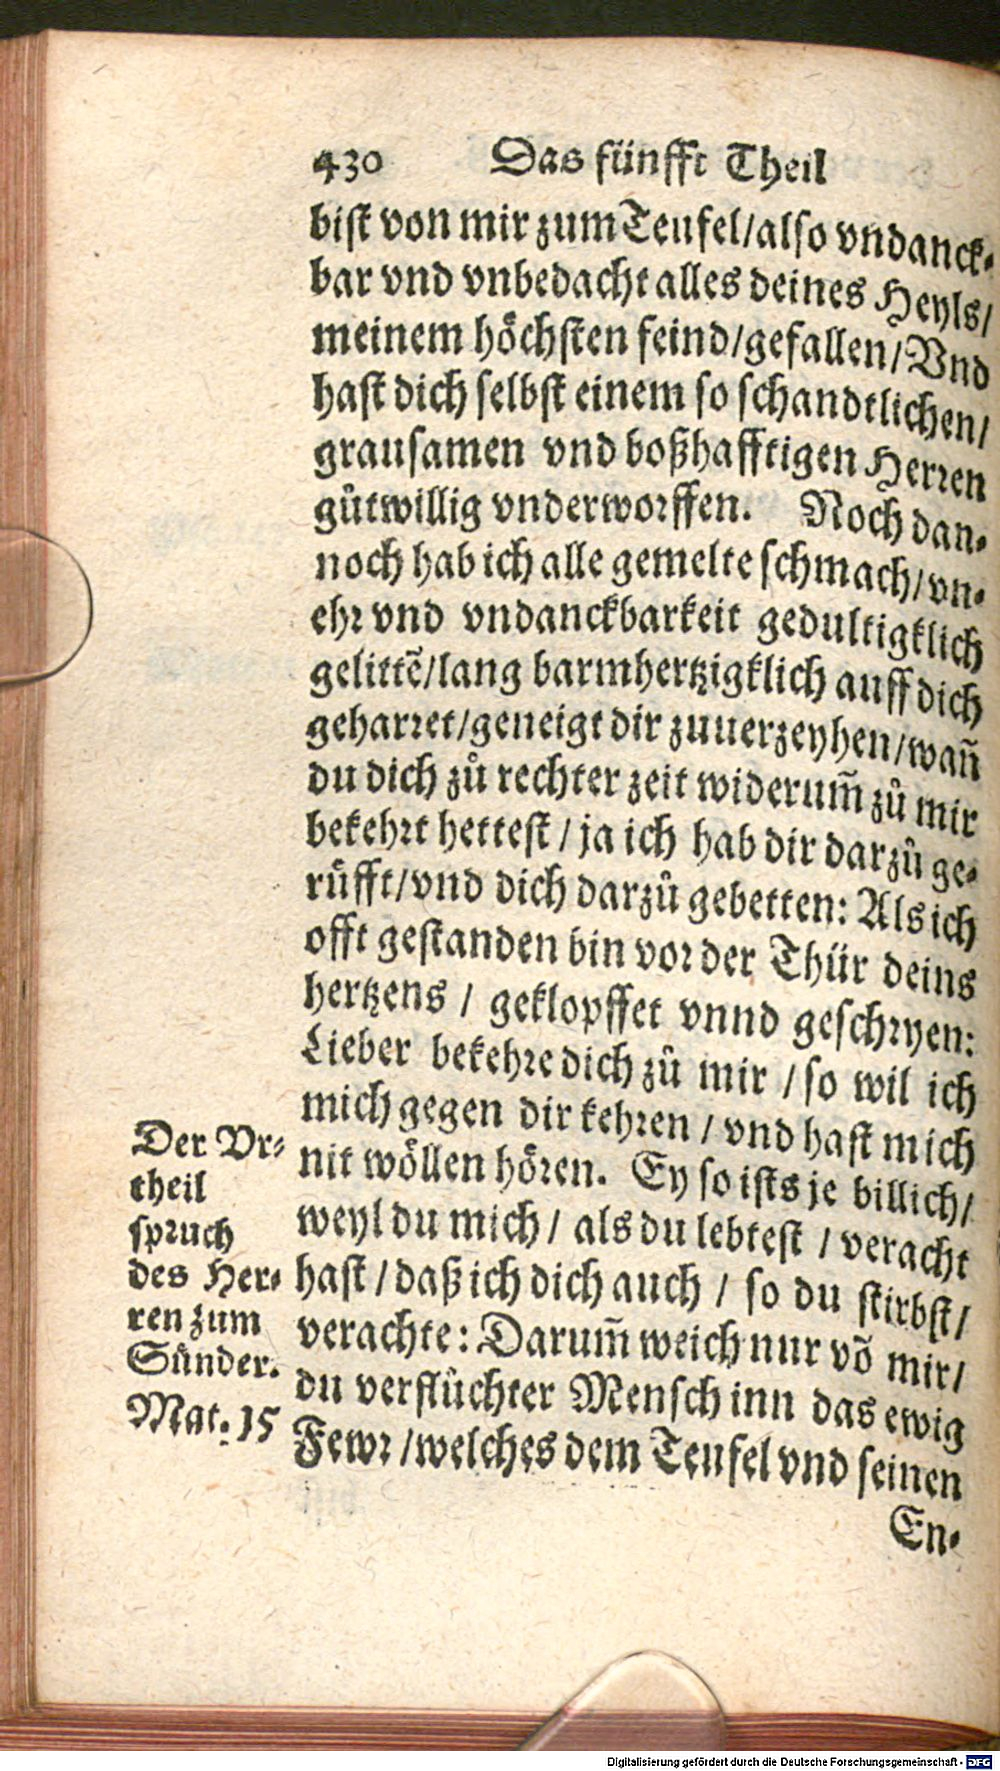 430 Das fünfft Theil
bist von mir zum Teufel/also vndanck-
bar vnd vnbedacht alles deines Heyls/
meinem höchsten feind/gefallen/Vnd
hast dich selbst einem so schandtlichen/
grausamen vnd boßhafftigen Herren
gůtwillig vnderworffen. Noch dan-
noch hab ich alle gemelte schmach/vn-
ehr vnd vndanckbarkeit gedultigklich
gelittẽ/lang barmhertzigklich auff dich
geharret/geneigt dir zuuerzeyhen/wañ
du dich zů rechter zeit widerum̃ zů mir
bekehrt hettest / ja ich hab dir darzů ge-
rüfft/vnd dich darzů gebetten: Als ich
offt gestanden bin vor der Thür deins
hertzens / geklopffet vnnd geschryen:
Lieber bekehre dich zů mir / so wil ich
mich gegen dir kehren / vnd hast mich
nit wöllen hören. Ey so ists je billich/
weyl du mich / als du lebtest / veracht
hast / daß ich dich auch / so du stirbst/
verachte: Darum̃ weich nur võ mir/
du verflůchter Mensch inn das ewig
Fewr /welches dem Teufel vnd seinen
En-
Der Vr-
theil
spruch
des Her-
ren zum
Sünder.
Mat. 15
Digitalisierung gefördert durch die Deutsche Forschungsgemeinschaft - DFG